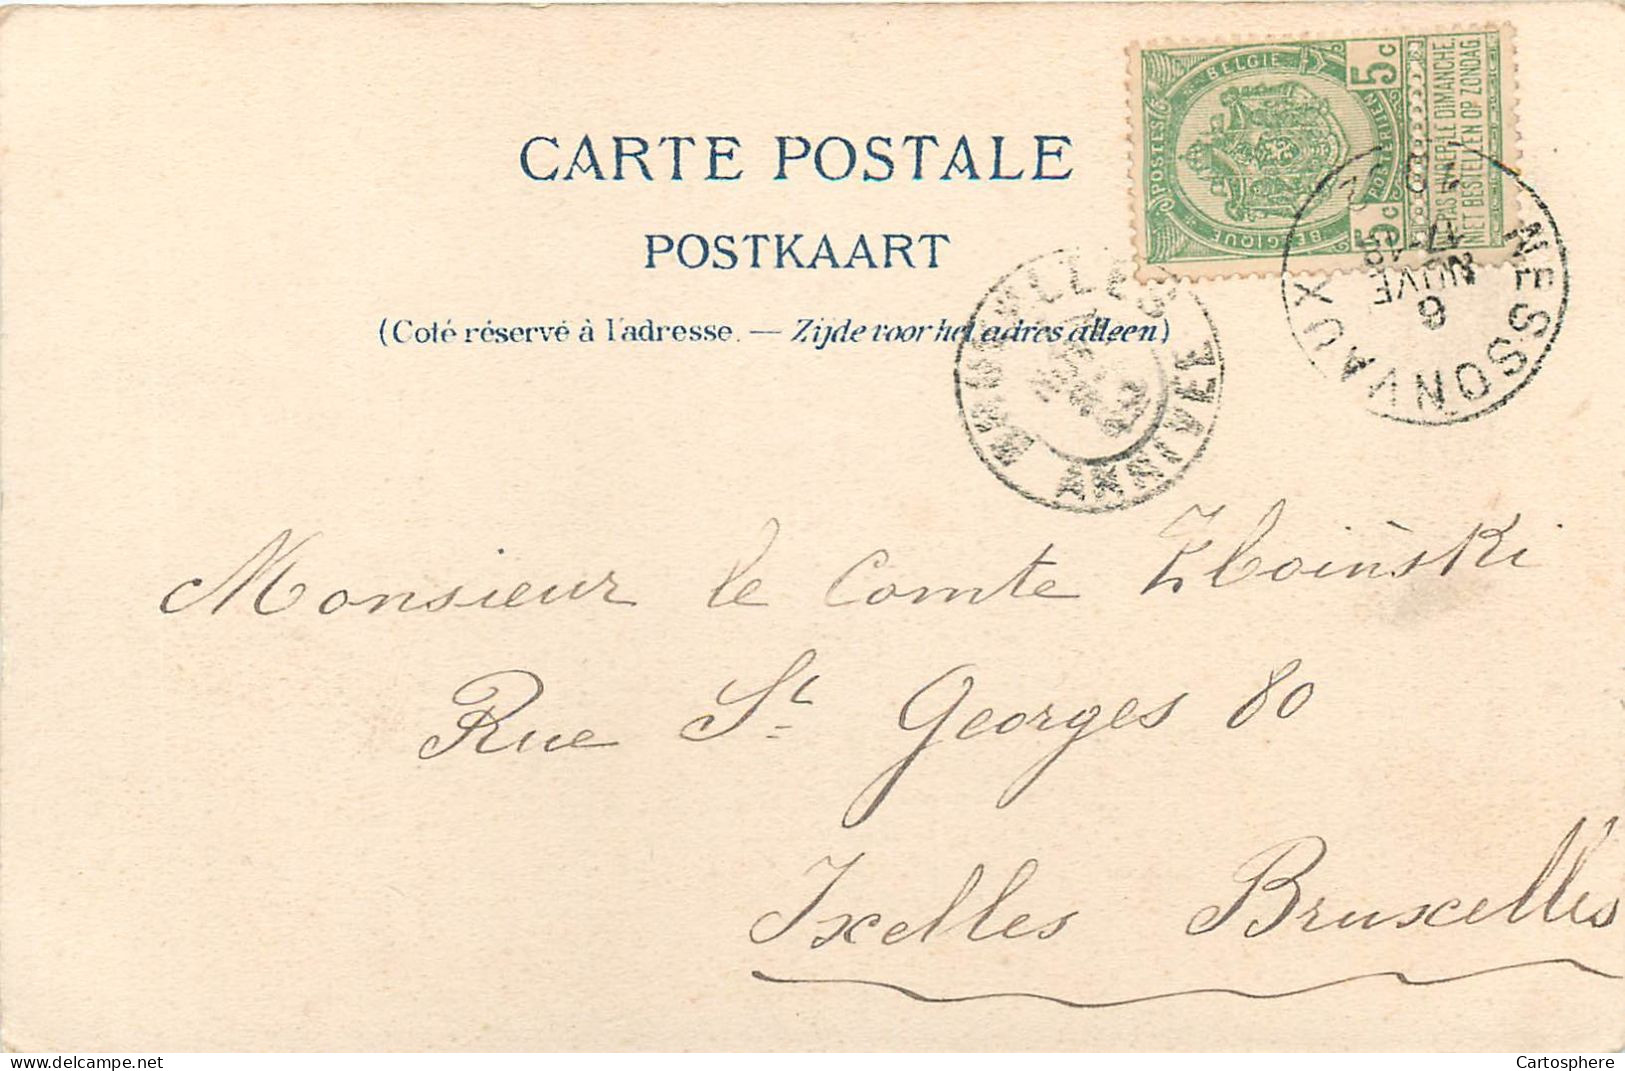 CARTE POSTALE
POSTKAART
(Coté réservé à l'adresse. — Zijde voor het adres alleen)
POSTES
BELGIE
BELGIQUE
POSTERIJEN
5c
5c
NE PAS LIVRER LE DIMANCHE.
NIET BESTELLEN OP ZONDAG
NESSONVAUX
6
NOVE
BRUXELLES
ARRIVEE
Monsieur le Comte Zboiński
Rue St Georges 80
Ixelles Bruxelles
www.delcampe.net
Cartosphere